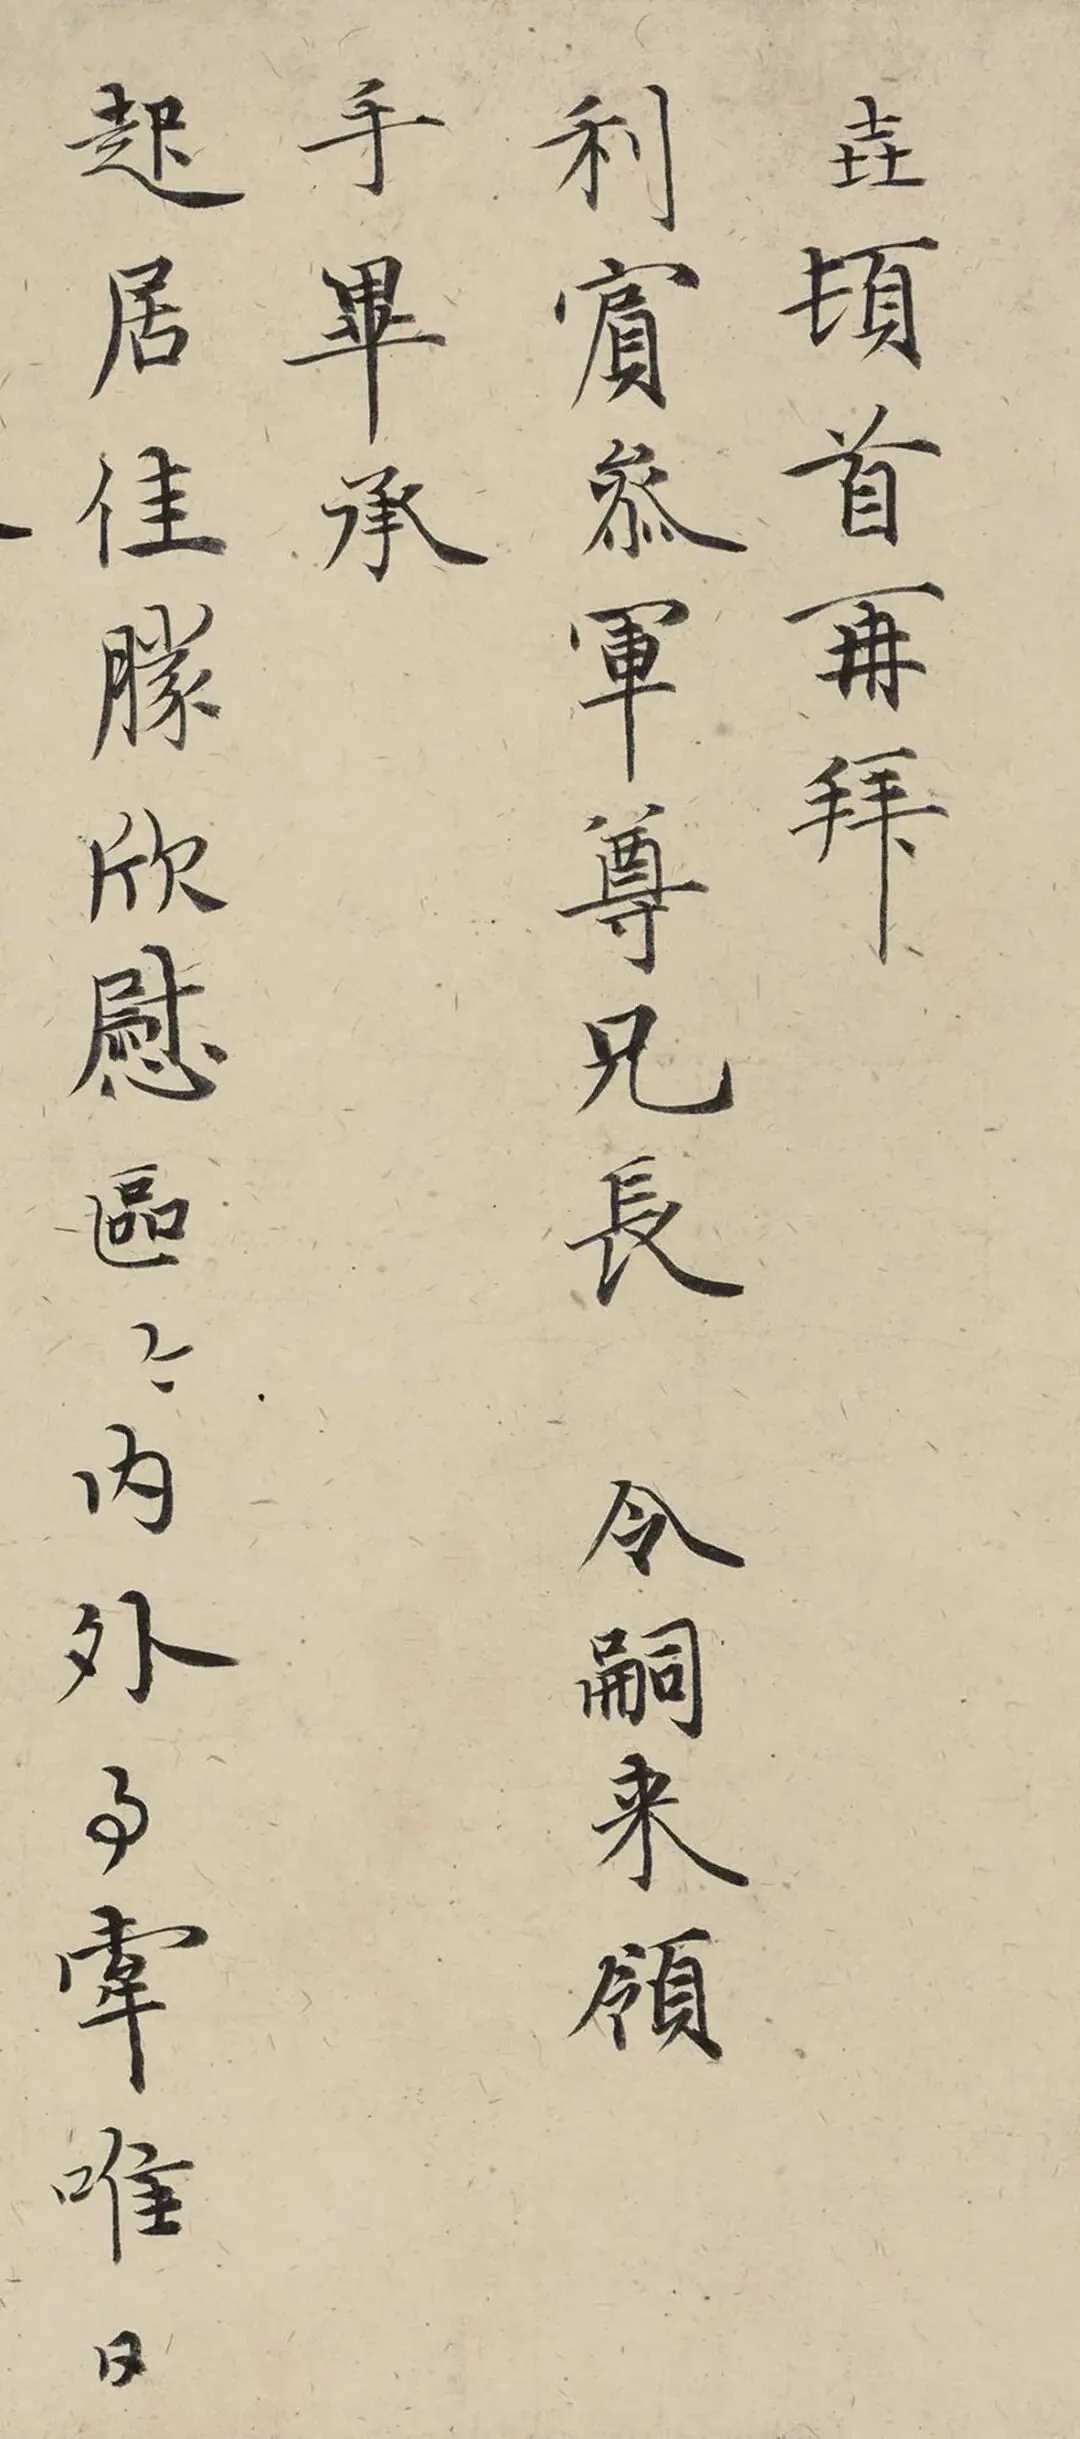 垚頓首再拜
利賓叅軍尊兄長 令嗣来領
手畢承
起居佳勝欣慰區〻内外事牽唯日